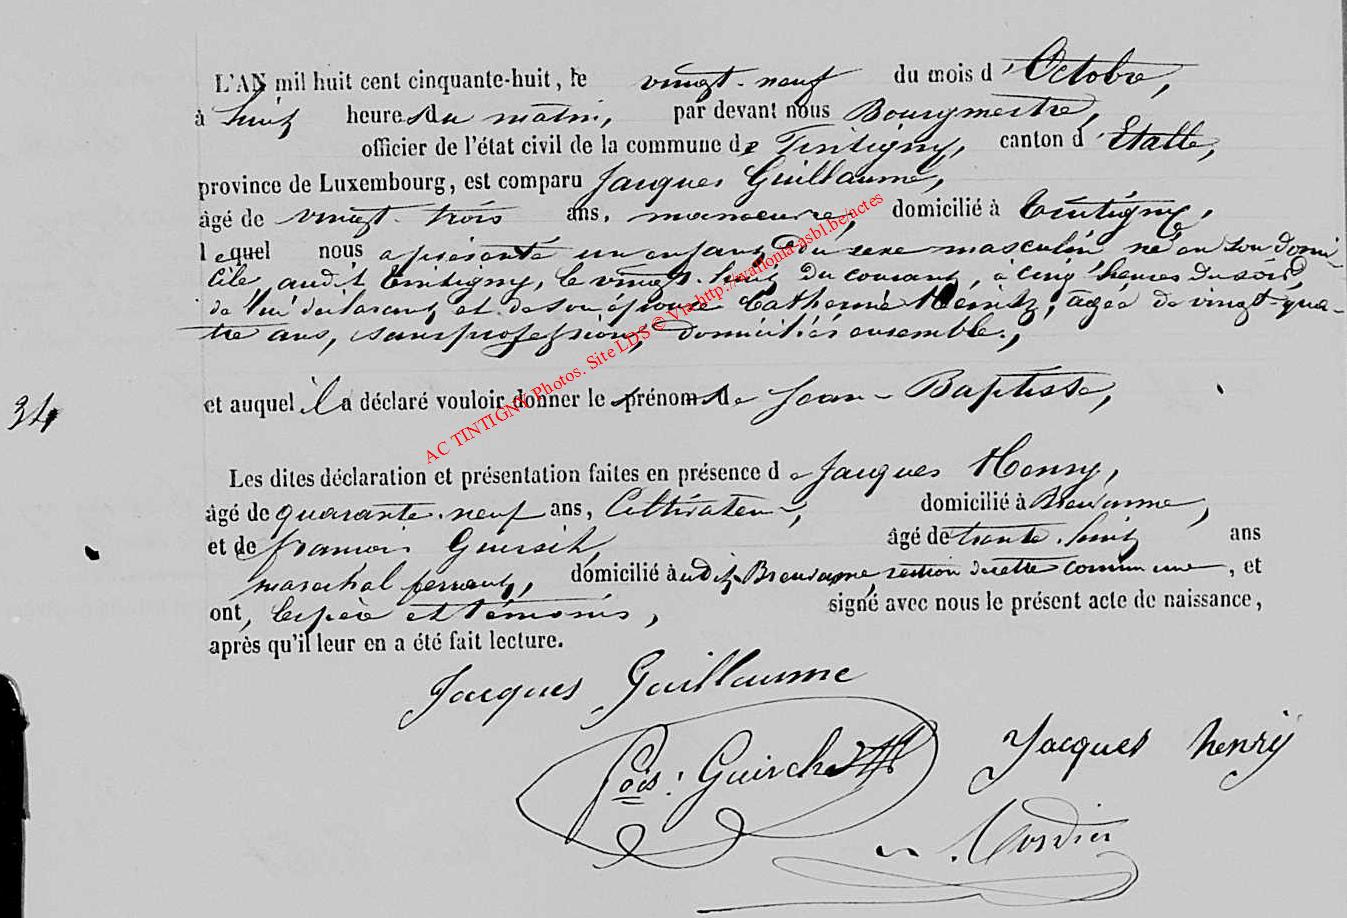 L'AN mil huit cent cinquante-huit, le vingt-neuf du mois d'Octobre,
à huit heures du matin, par devant nous Bourgmestre,
officier de l'état civil de la commune de Tintigny, canton d'Etalle,
province de Luxembourg, est comparu Jacques Guillaume,
âgé de vingt-trois ans, manoeuvre, domicilié à Tintigny,
lequel nous a présenté un enfant du sexe masculin, né en son domi-
cile, audit Tintigny, le vingt-huit du courant, à cinq heures du soir,
de lui déclarant, et de son épouse Catherine, âgée de vingt-qua-
tre ans, sans profession, domiciliés ensemble,
34
et auquel il a déclaré vouloir donner le prénom de Jean-Baptiste,
Les dites déclaration et présentation faites en présence de Jacques Henry,
âgé de quarante-neuf ans, Cultivateur, domicilié à Breuvanne,
et de François âgé de trente-huit ans
maréchal ferrant, domicilié audit Breuvanne, section de cette commune, et
ont, le père et témoins, signé avec nous le présent acte de naissance,
après qu'il leur en a été fait lecture.
Jacques Guillaume
Fçois: Guirch
Jacques henry
Cordier
AC TINTIGNY Photos. Site LDS © Via http://wallonia-asbl.be/actes